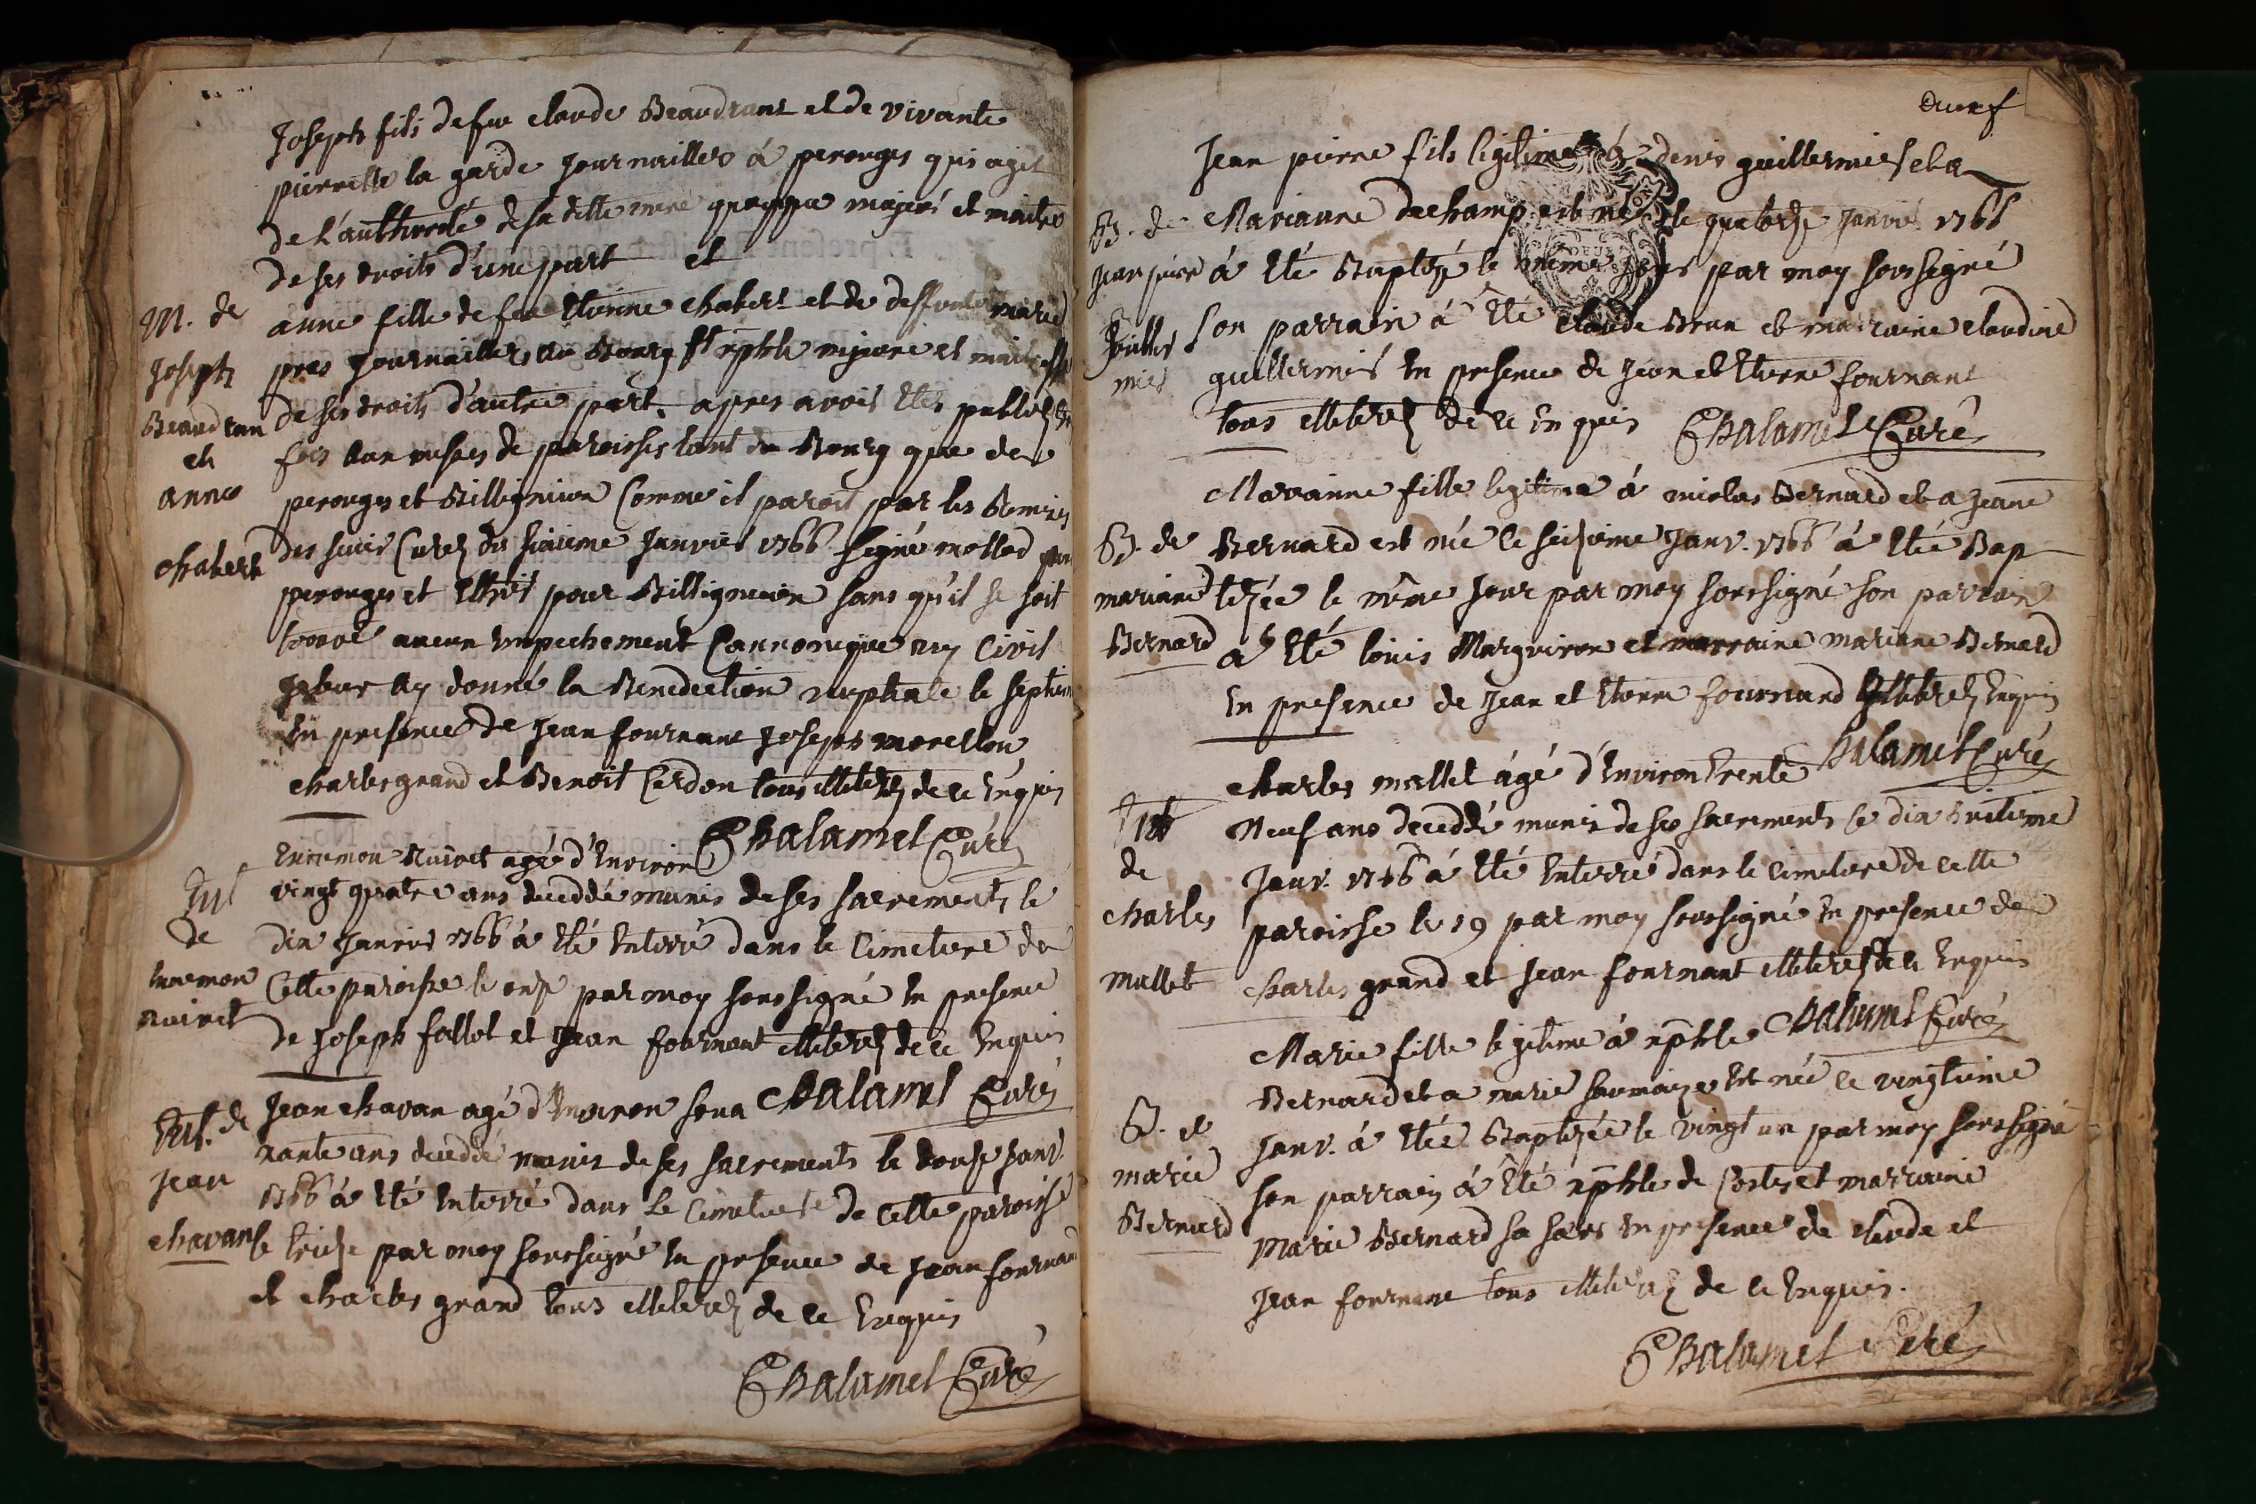 Joseph fils de feu claude Beaudrant et de vivante
pierrette la garde Journaillier á perouges qui agit
de l'authorité de sa ditte mere quoyque majeur et maitre
de ses droits d'une part et
M. de
Joseph
Beaudran
et
anne
chabert
anne fille de feu Etienne chabert et de deffunte marie
pras Journaillere au Bourg st xphle majeure et maitresse
de ses droits d'autre part, apres avoir étés publiéz
fois aux messes de paroisses tant du Bourg que de
perouges et Billignieu Comme il paroit par les Remises
des sieurs Curéz du sixieme Janvier 1766 signé mollod pour
perouges et pour Billignieu sans qu'il se soit
trouvé aucun Empechement Cannonique ny Civil
Je leur ay donné la Benediction nuptiale le septieme
En presence de Jean fournant Joseph morellon
charles grand et Benoit Cerdon tous illiteréz de ce Enquis
Chalamel Curé
Ent
de
Ennemon
ruivet
Ennemon Ruivet agé d'Environ
vingt quatre ans déceddé munis de ses sacrements le
dix Janvier 1766 á eté Enterré dans le Cimetiere de
Cette paroisse le onze par moy soussigné En presence
de Joseph follot et Jean fournant illiteréz de ce Enquis
Chalamel Curé
Ent. de
Jean
chavan
Jean chavan agé d'Environ soixa
xante ans déceddé munis de ses sacrements le douze Janv.
1766 á eté Enterré dans le Cimetiere de Cette paroisse
le treize par moy soussigné En presence de Jean fournand
et charles grand tous illiteréz de ce Enquis
Chalamel Curé
Jean pierre fils legitime á denis guillermier et a
B. de
Jean piere
Guiller
mier
Marianne dechamp est né le quatorze Janvier 1766
á eté Baptizé le même Jour par moy soussigné
son parrain á eté claude Brun et marraine claudine
guillermier En presence de Jean et Etienne fournant
tous illiteréz de ce Enquis Chalamel Curé
B. de
mariane
Bernard
Marianne fille legitime á nicolas Bernard et a Jeane
Bernard est née le seizieme Janv. 1766 á etée Bap
tizée le même Jour par moy soussigné son parrain
á eté louis Marguiron et marraine mariane Bernard
En presence de Jean et Etienne fournand illiteréz Enquis
Chalamel Curé
Ent
de
charles
mallet
charles mallet ágé d'Environ trente
Neuf ans déceddé munis de ses sacrements le dix huitieme
Janv. 1766 á eté Enterré dans le Cimetiere de cette
paroisse le 19 par moy soussigné En presence de
charles grand et Jean fournant illiteréz de ce Enquis
Chalamel Curé
B. de
marie
Bernard
Marie fille legitime á xphle
Bernard et a marie saumaize Est née le vingtieme
Janv. á etée Baptizée le vingt un par moy soussigné
son parrain á eté xphle de Costes et marraine
Marie Bernard sa sœur En presence de claude et
Jean fournant tous illiteréz de ce Enquis.
Chalamel Curé